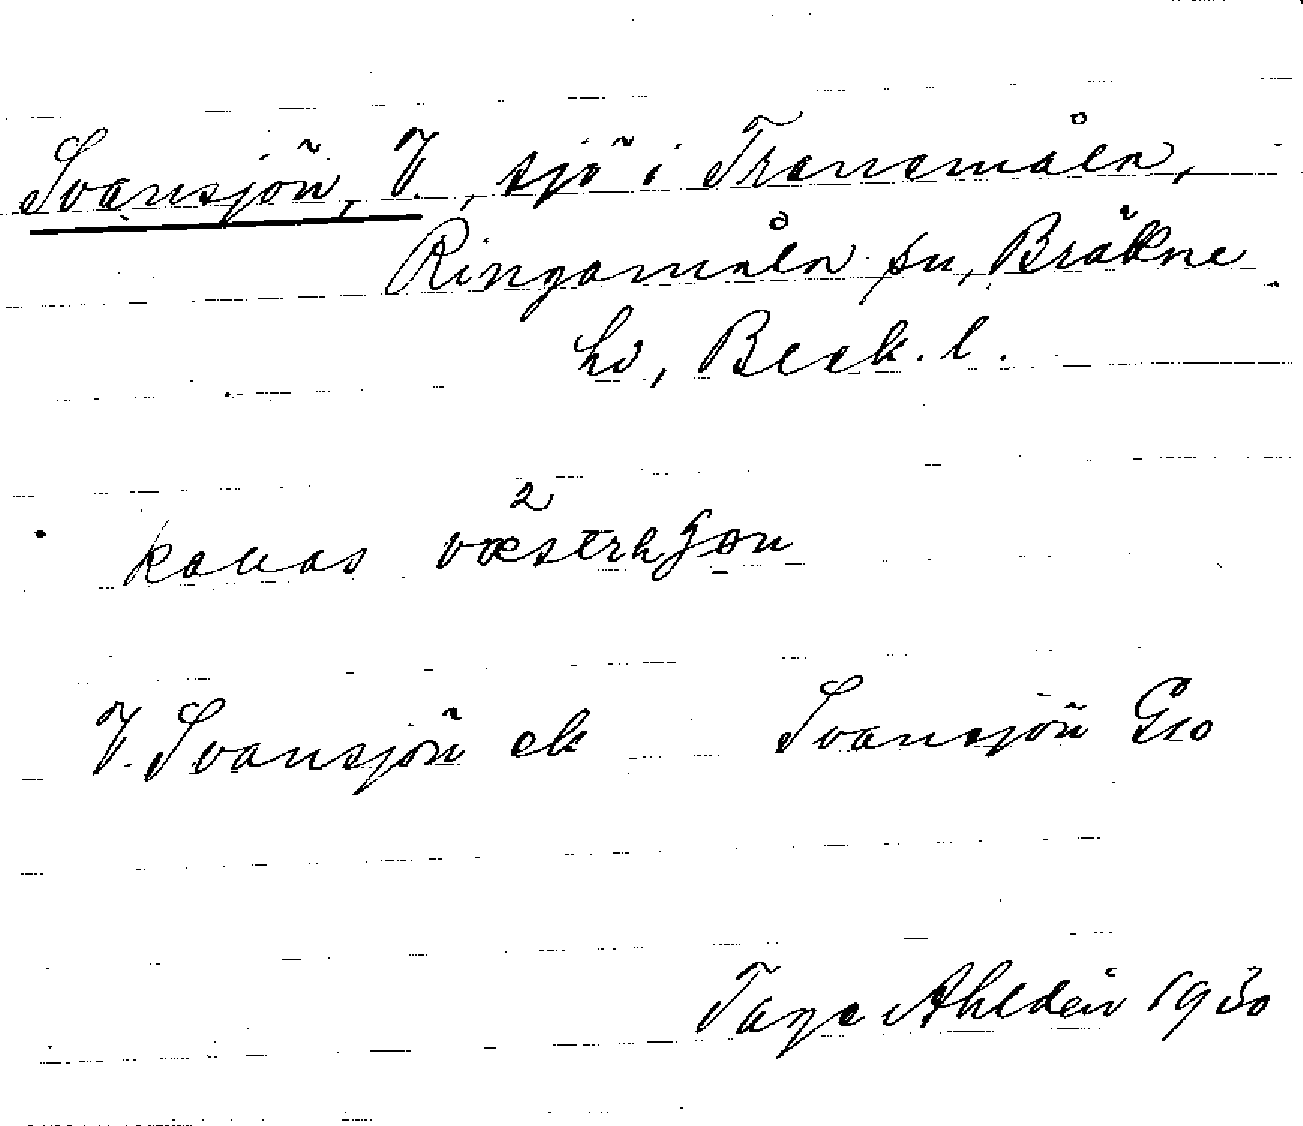 Svansjön, V., sjö i Tranemåla,
Ringamåla sn, Bräkne
hd, Blek. l.
kallas væstrəsjøn
V. Svansjön ek Svansjön Gso
Tage Ahldén 1930